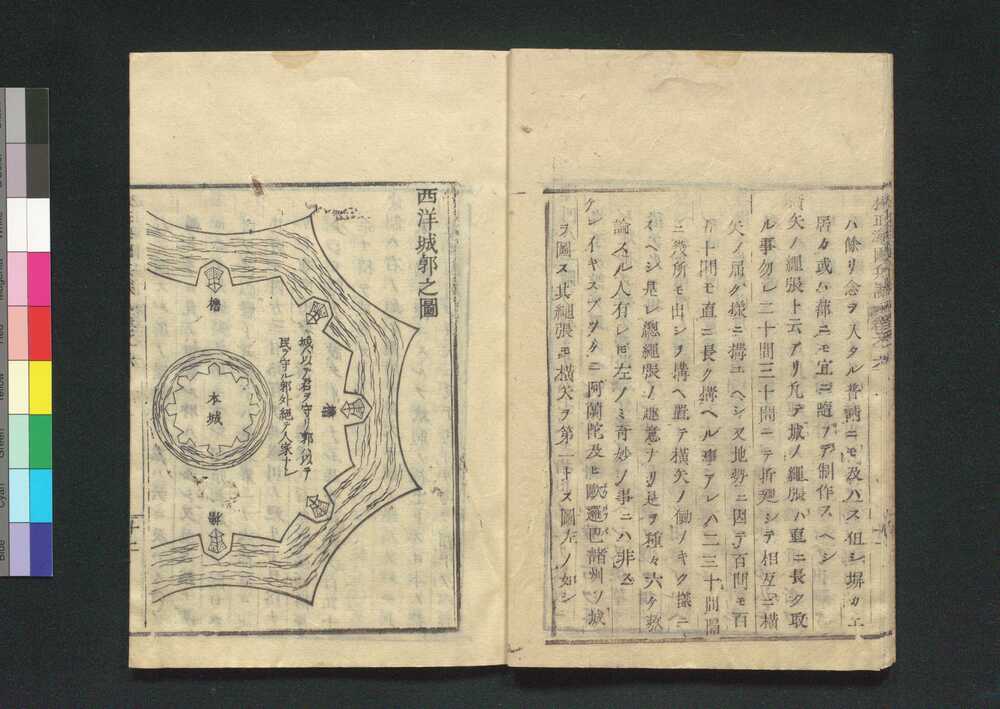 ハ餘リ念ヲ入タル普請ニモ及ハス但シ塀カエ
居カ或ハ都ニモ宜ニ隨テ制作スヘシ
横矢ノ繩張ト云アリ凡テ城ノ繩張ハ直ニ長ク取
ル事勿レ二十間三十間ニテ折廻シテ相互ニ横
矢ノ届ク樣ニ構ユヘシ又地勢ニ因テ百間モ百
五十間モ直ニ長ク構ヘル事アレハ二三十間隔
ニ幾所モ出シヲ構ヘ置テ横矢ノ働ノキク樣ニ
スヘシ是レ總繩張ノ趣意ナリ是ヲ種々六ケ敷
論スル人有レ𪜈左ノミ奇妙ノ事ニハ非ス
ケレイキスブックニ阿蘭陀及ヒ歐邏巴諸州ノ城
ヲ圖ス其繩張モ横矢ヲ第一トス圖左ノ如シ
西洋城郭之圖
櫓
櫓
櫓
本城
城ハ以テ君ヲ守リ郭ハ以テ
民ヲ守ル郭外絕テ人家ナシ